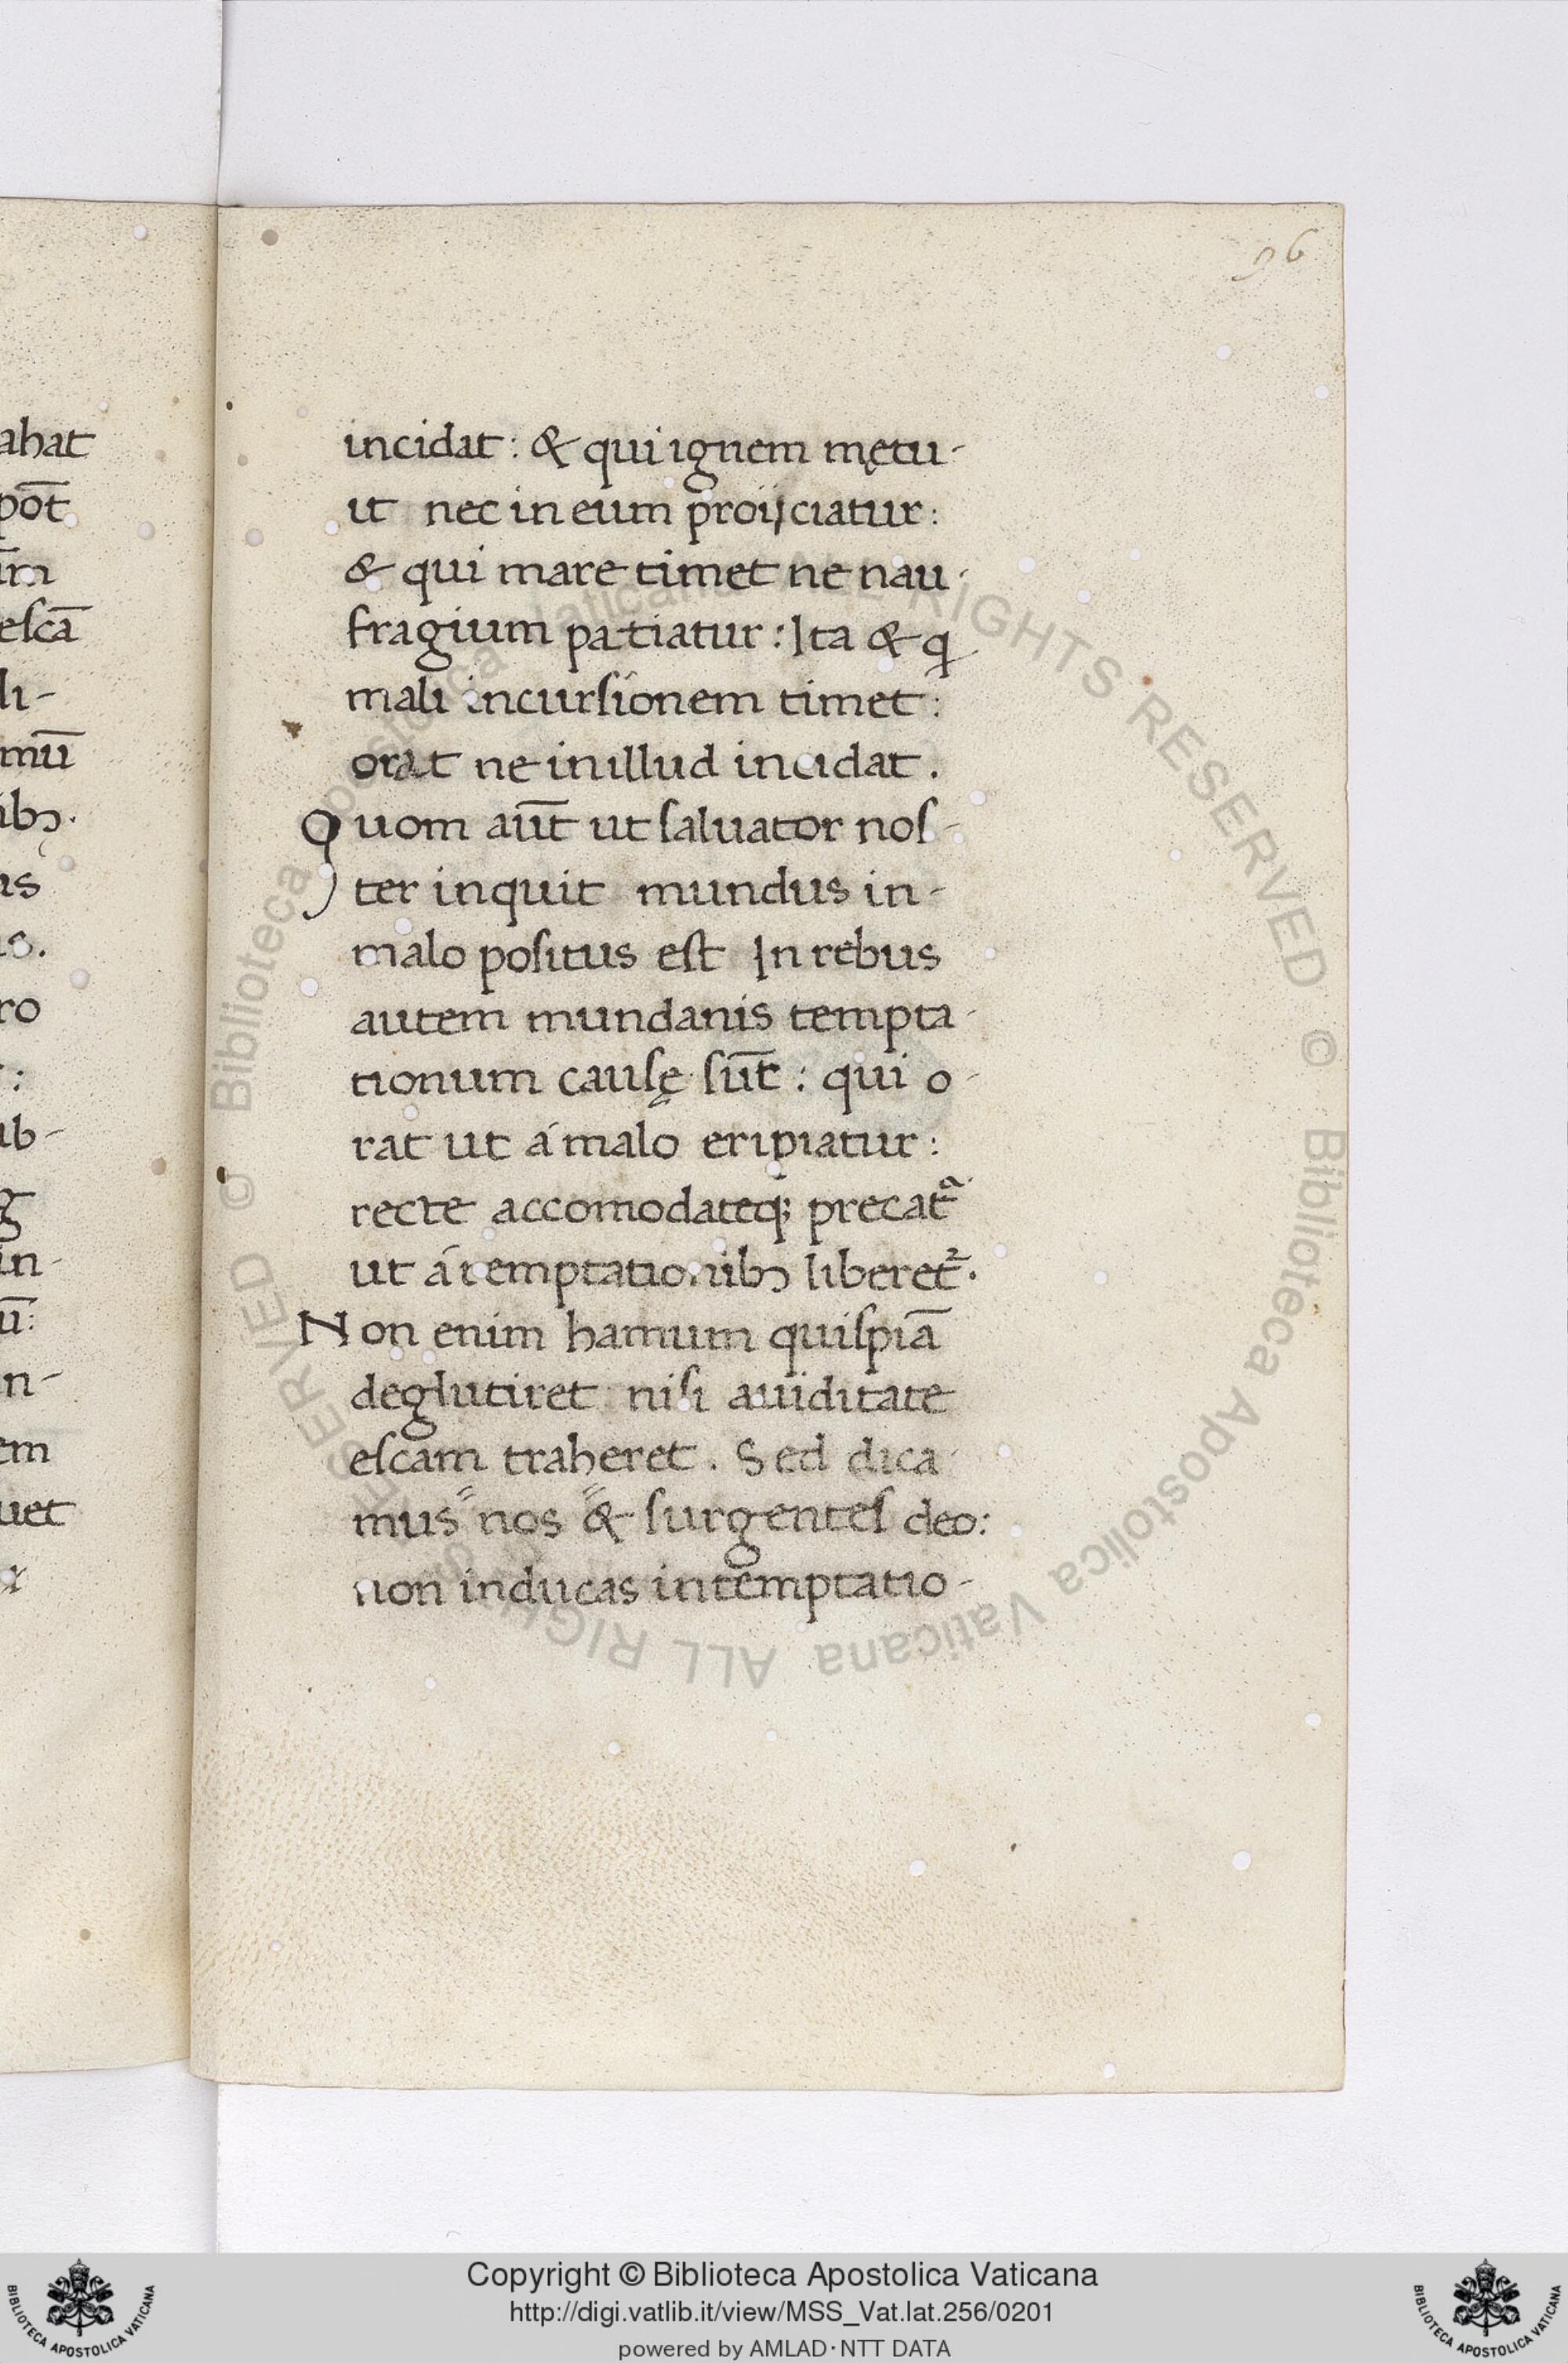 96
incidat: & qui ignem mętu-
it nec in eum proijciatur:
& qui mare timet ne nau-
fragium patiatur: Ita & q
mali incursionem timet:
orat ne in illud incidat.
Quom aut̄ ut saluator nos-
ter inquit mundus in-
malo positus est In rebus
autem mundanis tempta-
tionum causę sūt: qui o-
rat ut á malo eripiatur:
recte accomodateq; precat᷑
ut á temptationibꝫ liberet᷑.
Non enim hamum quispiā
deglutiret nisi auiditate
escam traheret. Sed dica-
mus nos & surgentes deo:
non inducas in temptatio-
ahat
pot̄
escā
li-
mū
ibꝫ.
us
ro
:
ub-
in-
ū:
n-
em
uet
© Biblioteca Apostolica Vaticana ALL RIGHTS RESERVED © Biblioteca Apostolica Vaticana ALL RIGHTS RESERVED
Copyright © Biblioteca Apostolica Vaticana
http://digi.vatlib.it/view/MSS_Vat.lat.256/0201
powered by AMLAD·NTT DATA
BIBLIOTECA APOSTOLICA VATICANA
BIBLIOTECA APOSTOLICA VATICANA